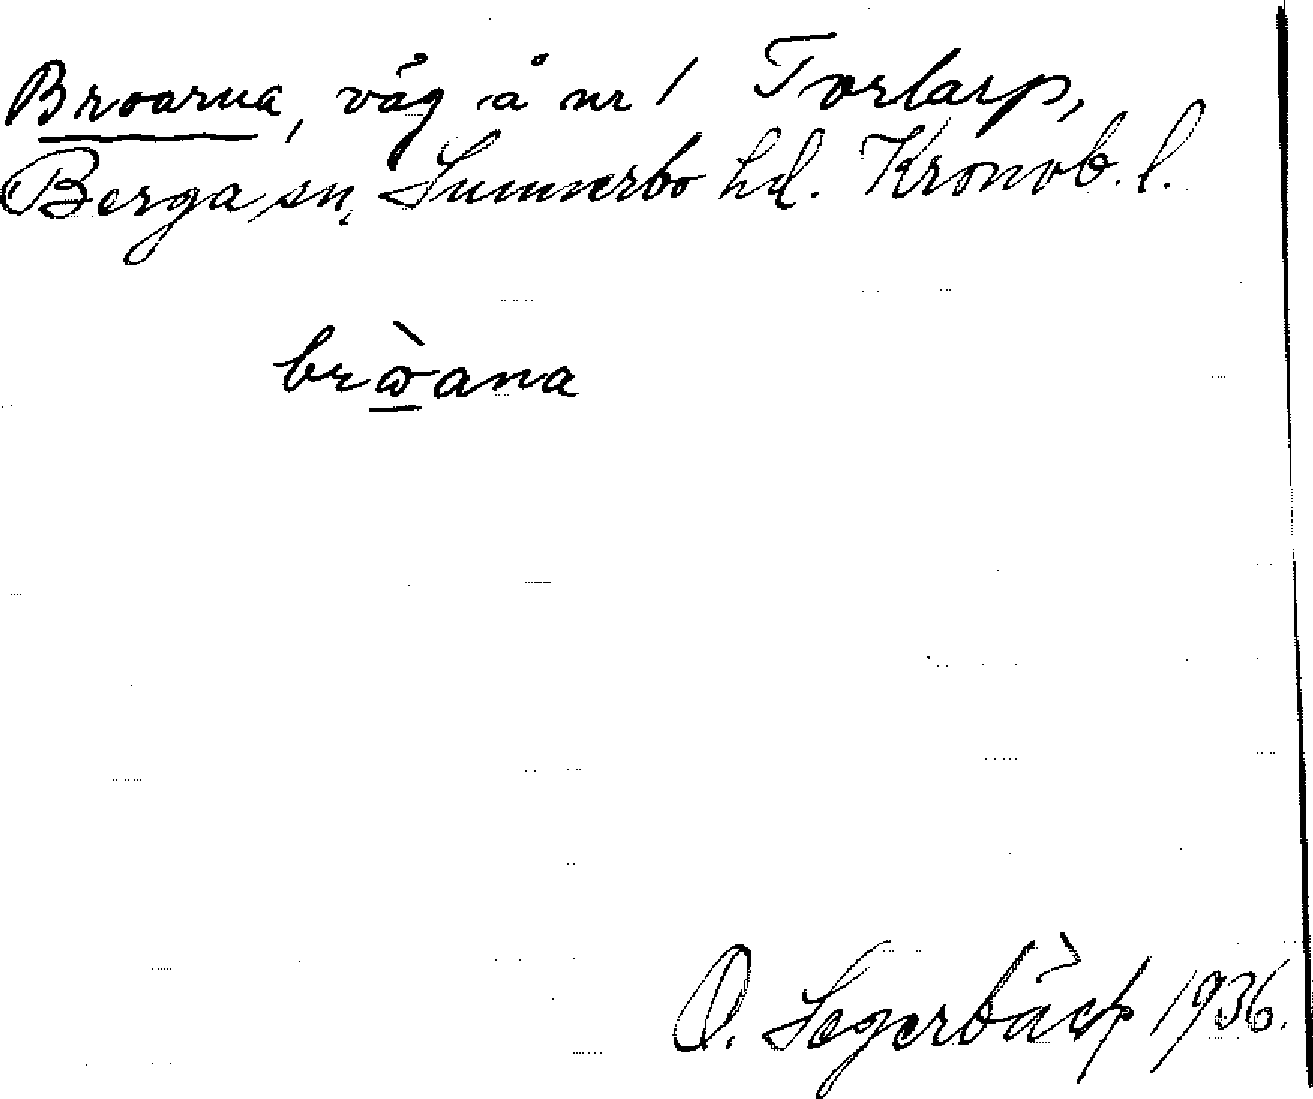 Broarna, väg å nr 1 Torlarp,
Berga sn, Sunnerbo hd. Kronob. l.
brὼ̱ana
O. Segerbäck 1936.